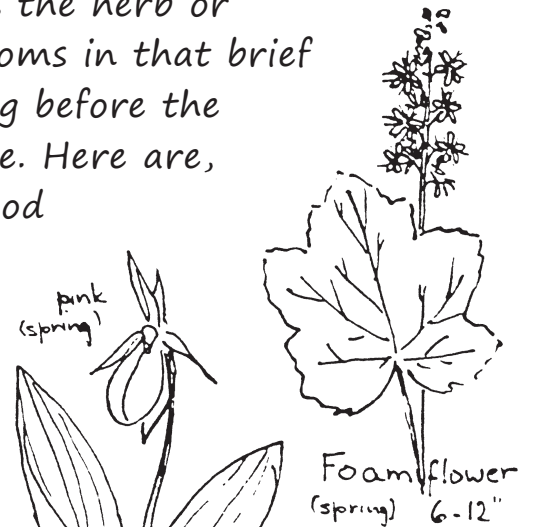 the herb or
ooms in that brief
g before the
e. Here are,
od
pink
(spring)
Foamflower
(spring) 6-12"